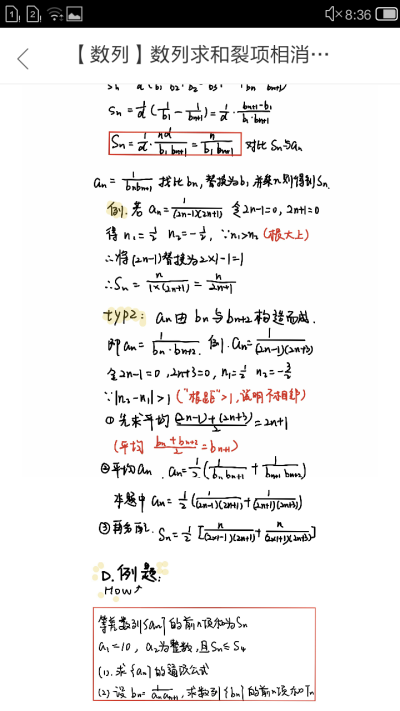 8:36
【数列】数列求和裂项相消…
Sn = 1/d (1/b₁ - 1/bn+1) = 1/d · (bn+1 - b₁)/(b₁ · bn+1)
Sn = 1/d · nd/(b₁ bn+1) = n/(b₁ bn+1) 对比 Sn与an
an = 1/(bn bn+1) 找比bn,替换为b₁ 并乘n则得到Sn.
例. 若 an = 1/((2n-1)(2n+1)) 令2n-1=0, 2n+1=0
得 n₁ = 1/2 n₂ = -1/2, ∵n₁>n₂ (根大上)
∴将(2n-1)替换为2×1-1=1
∴Sn = n/(1×(2n+1)) = n/(2n+1)
typ2: an由bn与bn+2构造而成.
即an = 1/(bn · bn+2). 例. an = 1/((2n-1)(2n+3))
令2n-1=0, 2n+3=0, n₁=1/2 n₂=-3/2
∵|n₂-n₁|>1 ("根距">1, 说明不相邻)
① 先求平均 ((2n-1)+(2n+3))/2 = 2n+1
(平均 (bn+bn+2)/2 = bn+1)
②平均an. an = 1/2 (1/(bn bn+1) + 1/(bn+1 bn+2))
本题中 an = 1/2 (1/((2n-1)(2n+1)) + 1/((2n+1)(2n+3)))
③ Sn = 1/2 [n/((2×1-1)(2n+1)) + n/((2×1+1)(2n+3))]
D. 例题:
How↗
等差数列{an}的前n项和为Sn
a₁=10, a₂为整数, 且Sn≤S₄
(1). 求{an}的通项公式
(2) 设bn = 1/(an an+1), 求数列{bn}的前n项和Tn